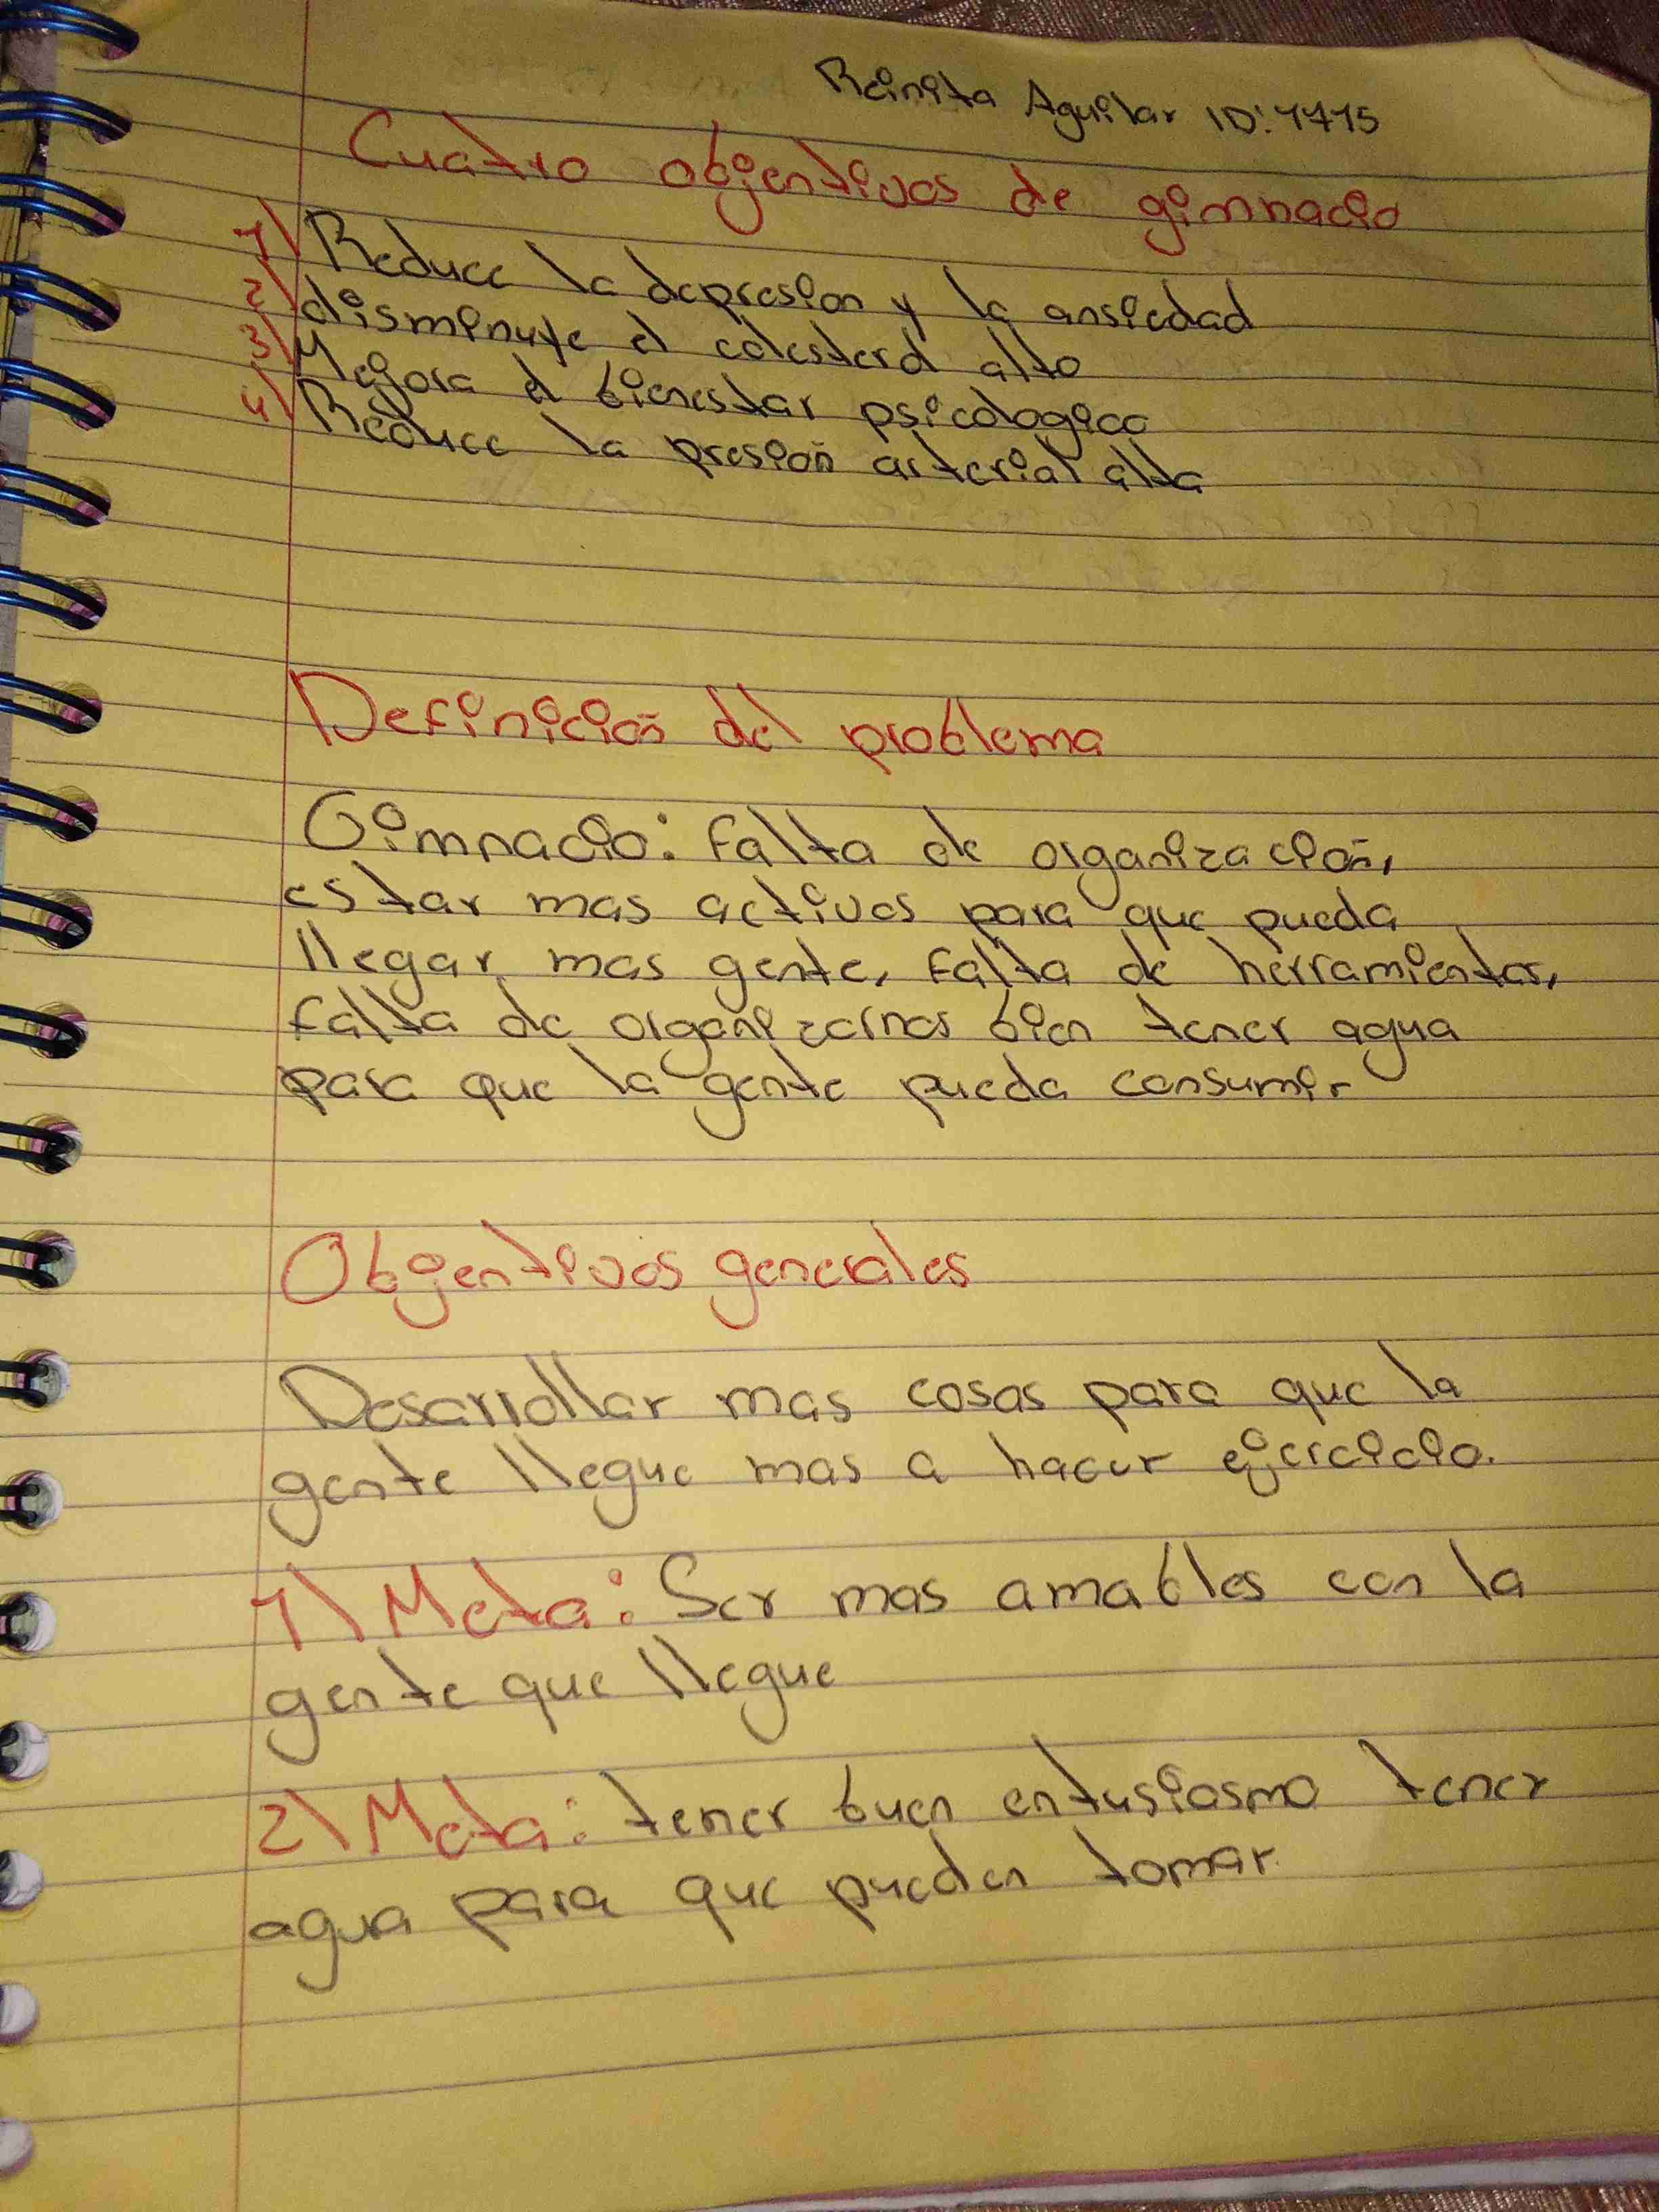 Reinita Aguilar ID: 1115
Cuatro objentivos de gimnacio
1) Reduce la depresion y la ansiedad
2) disminuye el colesterol alto
3) Mejora el bienestar psicologico
4) Reduce la presión arterial alta
Definición del problema
Gimnacio: falta de organización,
estar mas activos para que pueda
llegar mas gente, falta de herramientas,
falta de organizarnos bien tener agua
para que la gente pueda consumir
Objentivos generales
Desarrollar mas cosas para que la
gente llegue mas a hacer ejercicio.
1) Meta: Ser mas amables con la
gente que llegue
2) Meta: tener buen entusiasmo tener
agua para que pueden tomar.